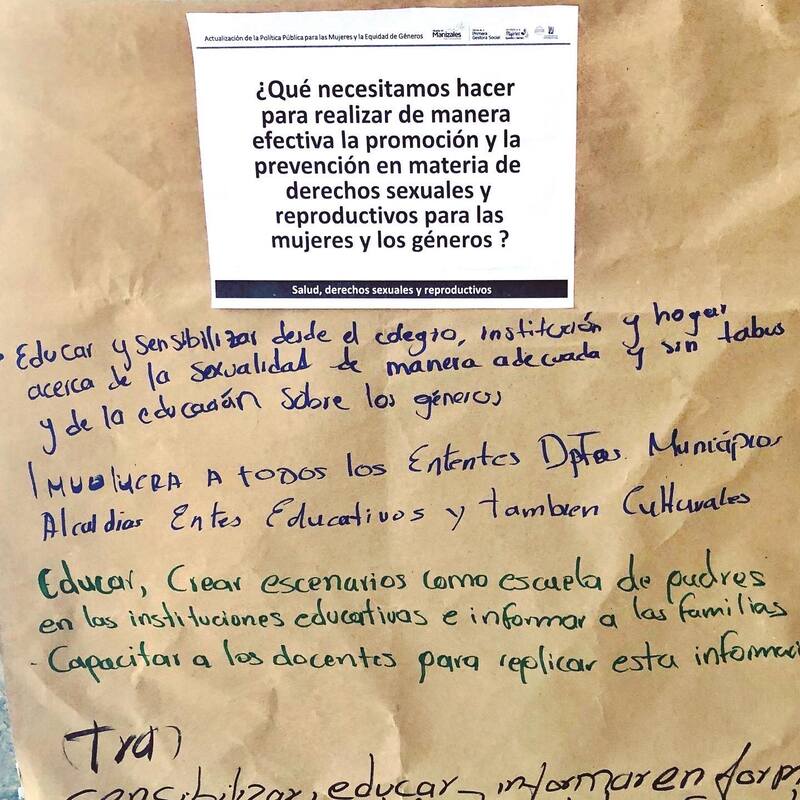 Actualización de la Política Pública para las Mujeres y la Equidad de Géneros
Manizales
Primera
Gestora Social
¿Qué necesitamos hacer
para realizar de manera
efectiva la promoción y la
prevención en materia de
derechos sexuales y
reproductivos para las
mujeres y los géneros ?
Salud, derechos sexuales y reproductivos
Educar y sensibilizar desde el colegio, institución y hogar
acerca de la sexualidad de manera adecuada y sin tabus
y de la educación sobre los géneros
Involucra a todos los Ententes Dptos Municipios
Alcaldias Entes Educativos y tambien Culturales
Educar, Crear escenarios como escuela de padres
en las instituciones educativas e informar a las familias
- Capacitar a los docentes para replicar esta informaci
(Tra)
sensibilizar, educar, informar en form